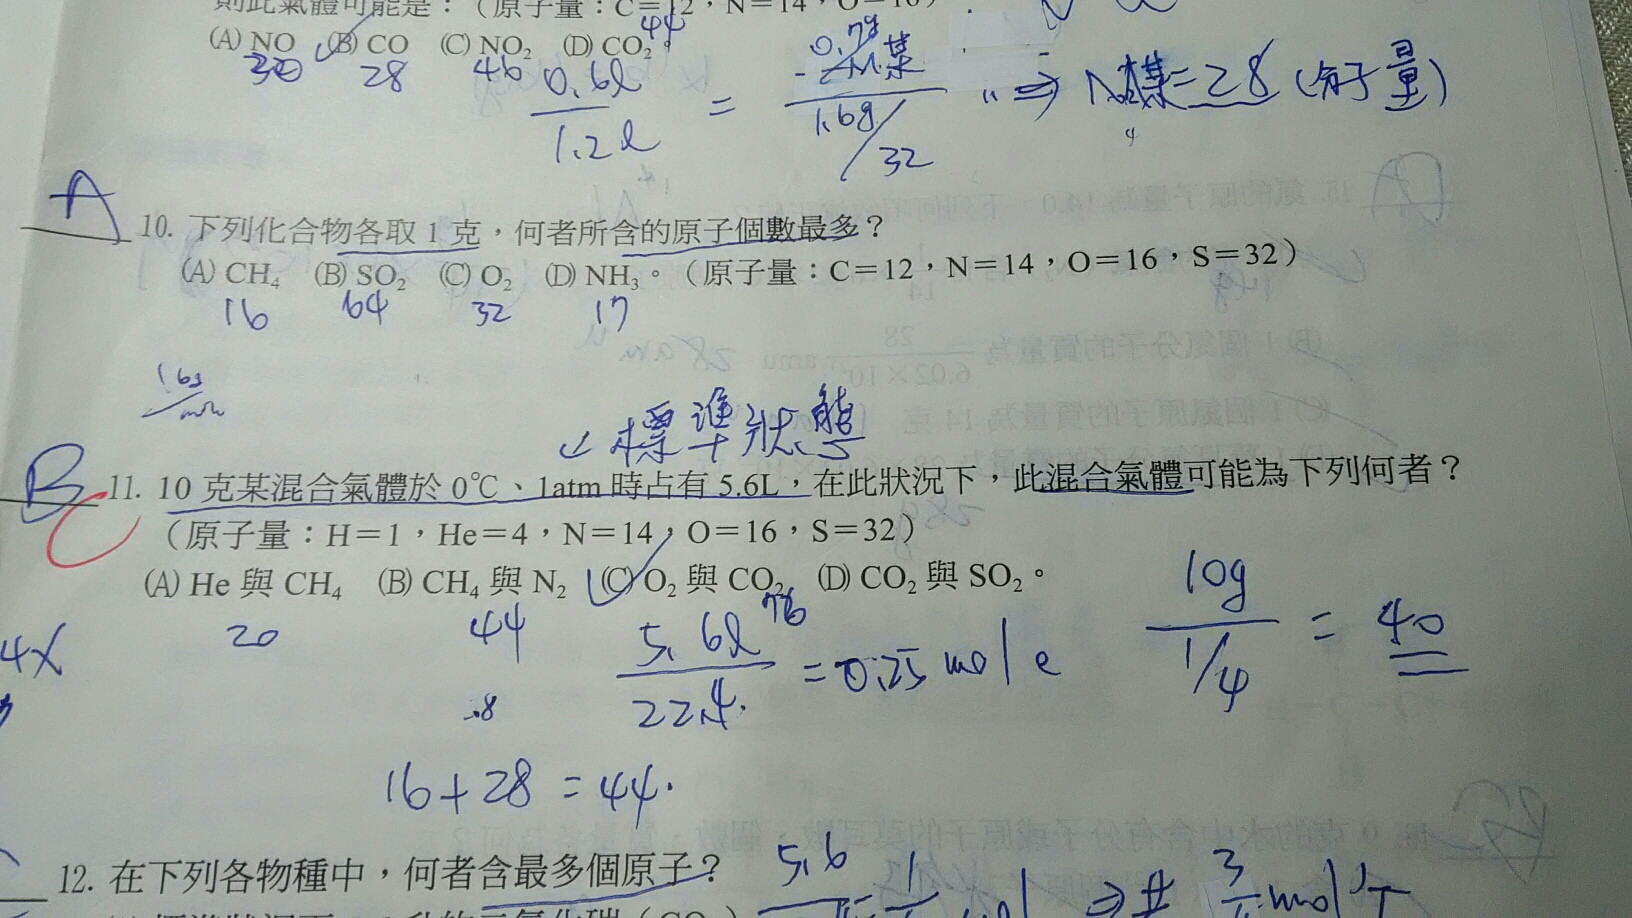 則此氣體可能是：（原子量：C＝12，N＝14，O＝16）
(A) NO (B) CO (C) NO₂ (D) CO₂。
30 28 46 44
0.6l / 1.2l = 0.7g/M某 / 1.6g/32 ⇒ 某=28 (分子量)
A
10. 下列化合物各取 1 克，何者所含的原子個數最多？
(A) CH₄ (B) SO₂ (C) O₂ (D) NH₃。（原子量：C＝12，N＝14，O＝16，S＝32）
16 64 32 17
↙ 標準狀態
B C
11. 10 克某混合氣體於 0℃、1atm 時占有 5.6L，在此狀況下，此混合氣體可能為下列何者？
（原子量：H＝1，He＝4，N＝14，O＝16，S＝32）
(A) He 與 CH₄ (B) CH₄ 與 N₂ (C) O₂ 與 CO₂ (D) CO₂ 與 SO₂。
20 44 76
5.6l / 22.4 = 0.25 mole
10g / 1/4 = 40
16+28=44.
12. 在下列各物種中，何者含最多個原子？
5.6